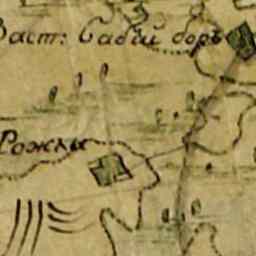 Заст: Бабій боръ
Рожки